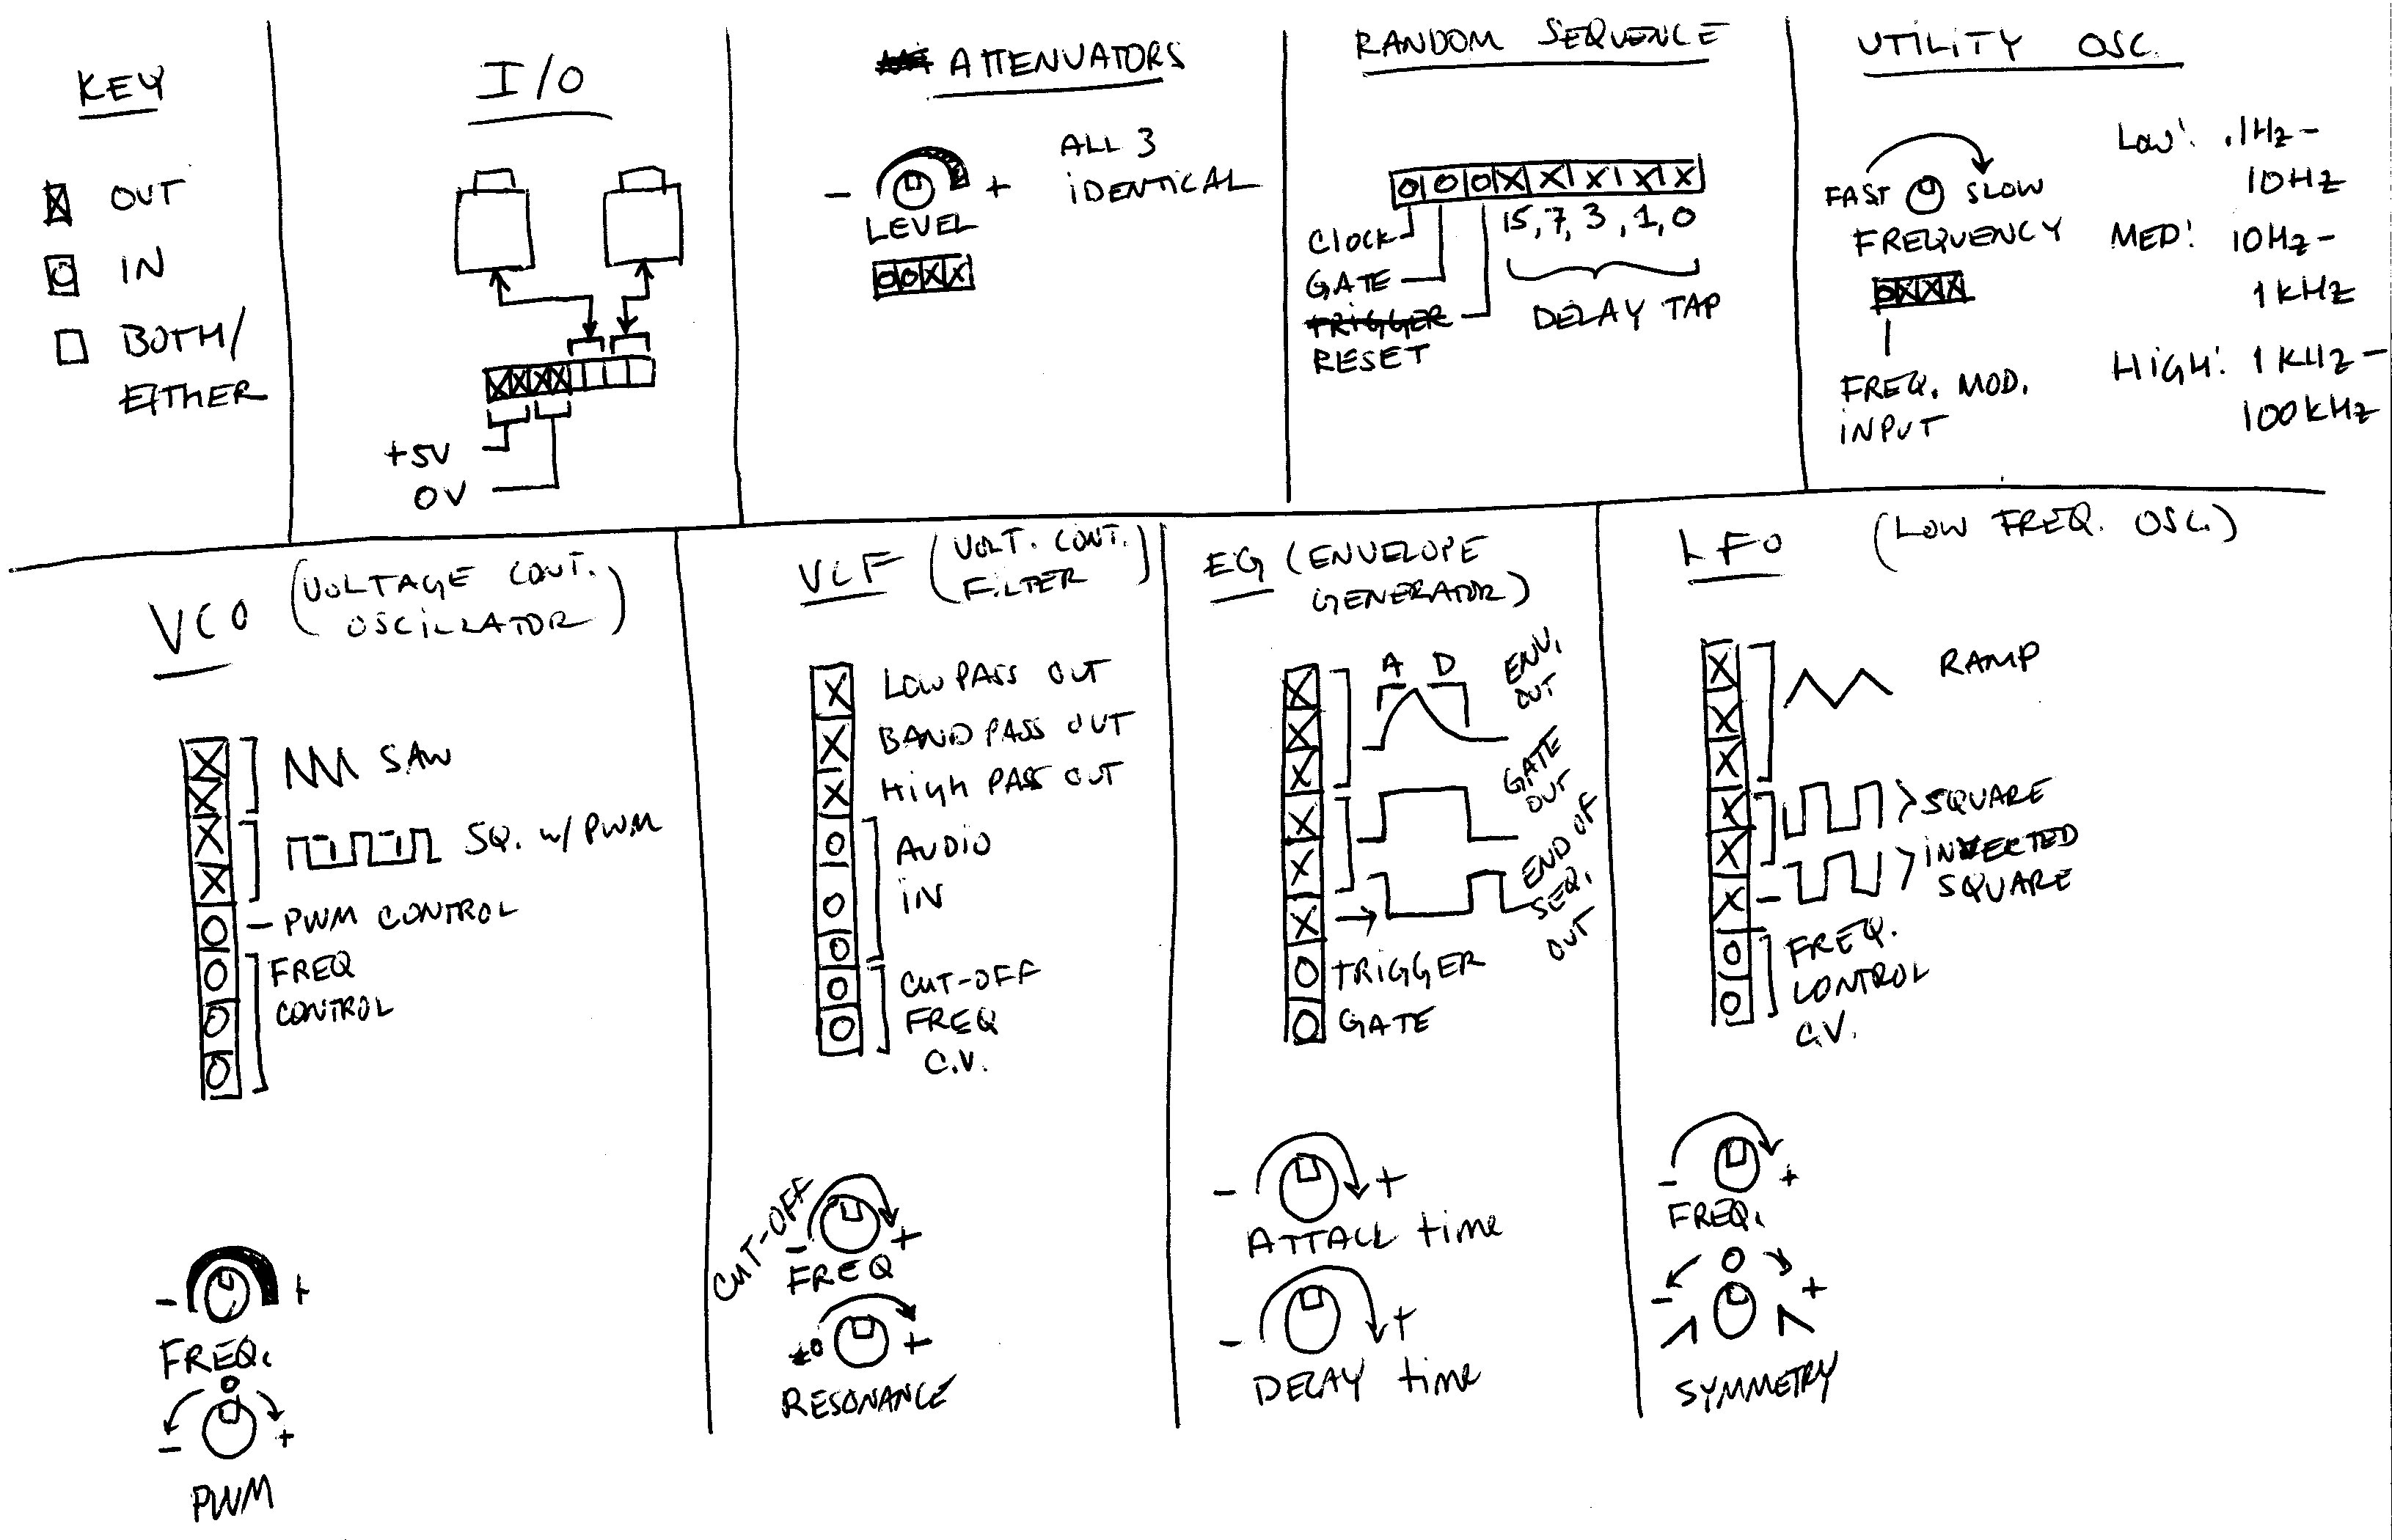 KEY
OUT
IN
BOTH/
EITHER
I/O
+5V
0V
ATTENUATORS
- +
LEVEL
ALL 3
IDENTICAL
RANDOM SEQUENCE
15, 7, 3, 1, 0
CLOCK
GATE
TRIGGER
RESET
DELAY TAP
UTILITY OSC.
FAST SLOW
FREQUENCY
FREQ. MOD.
INPUT
LOW: .1Hz -
10Hz
MED: 10Hz -
1KHz
HIGH: 1KHz -
100KHz
VCO (VOLTAGE CONT.
OSCILLATOR)
SAW
SQ. w/ PWM
- PWM CONTROL
FREQ
CONTROL
- +
FREQ.
- +
PWM
VCF (VOLT. CONT.
FILTER)
LOW PASS OUT
BAND PASS OUT
HIGH PASS OUT
AUDIO
IN
CUT-OFF
FREQ
C.V.
CUT-OFF
- +
FREQ
0 +
RESONANCE
EG (ENVELOPE
GENERATOR)
A D
ENV.
OUT
GATE
OUT
END OF
SEQ.
OUT
TRIGGER
GATE
- +
ATTACK time
- +
DECAY time
LFO (LOW FREQ. OSC.)
RAMP
SQUARE
INVERTED
SQUARE
FREQ.
CONTROL
C.V.
- +
FREQ.
- +
SYMMETRY